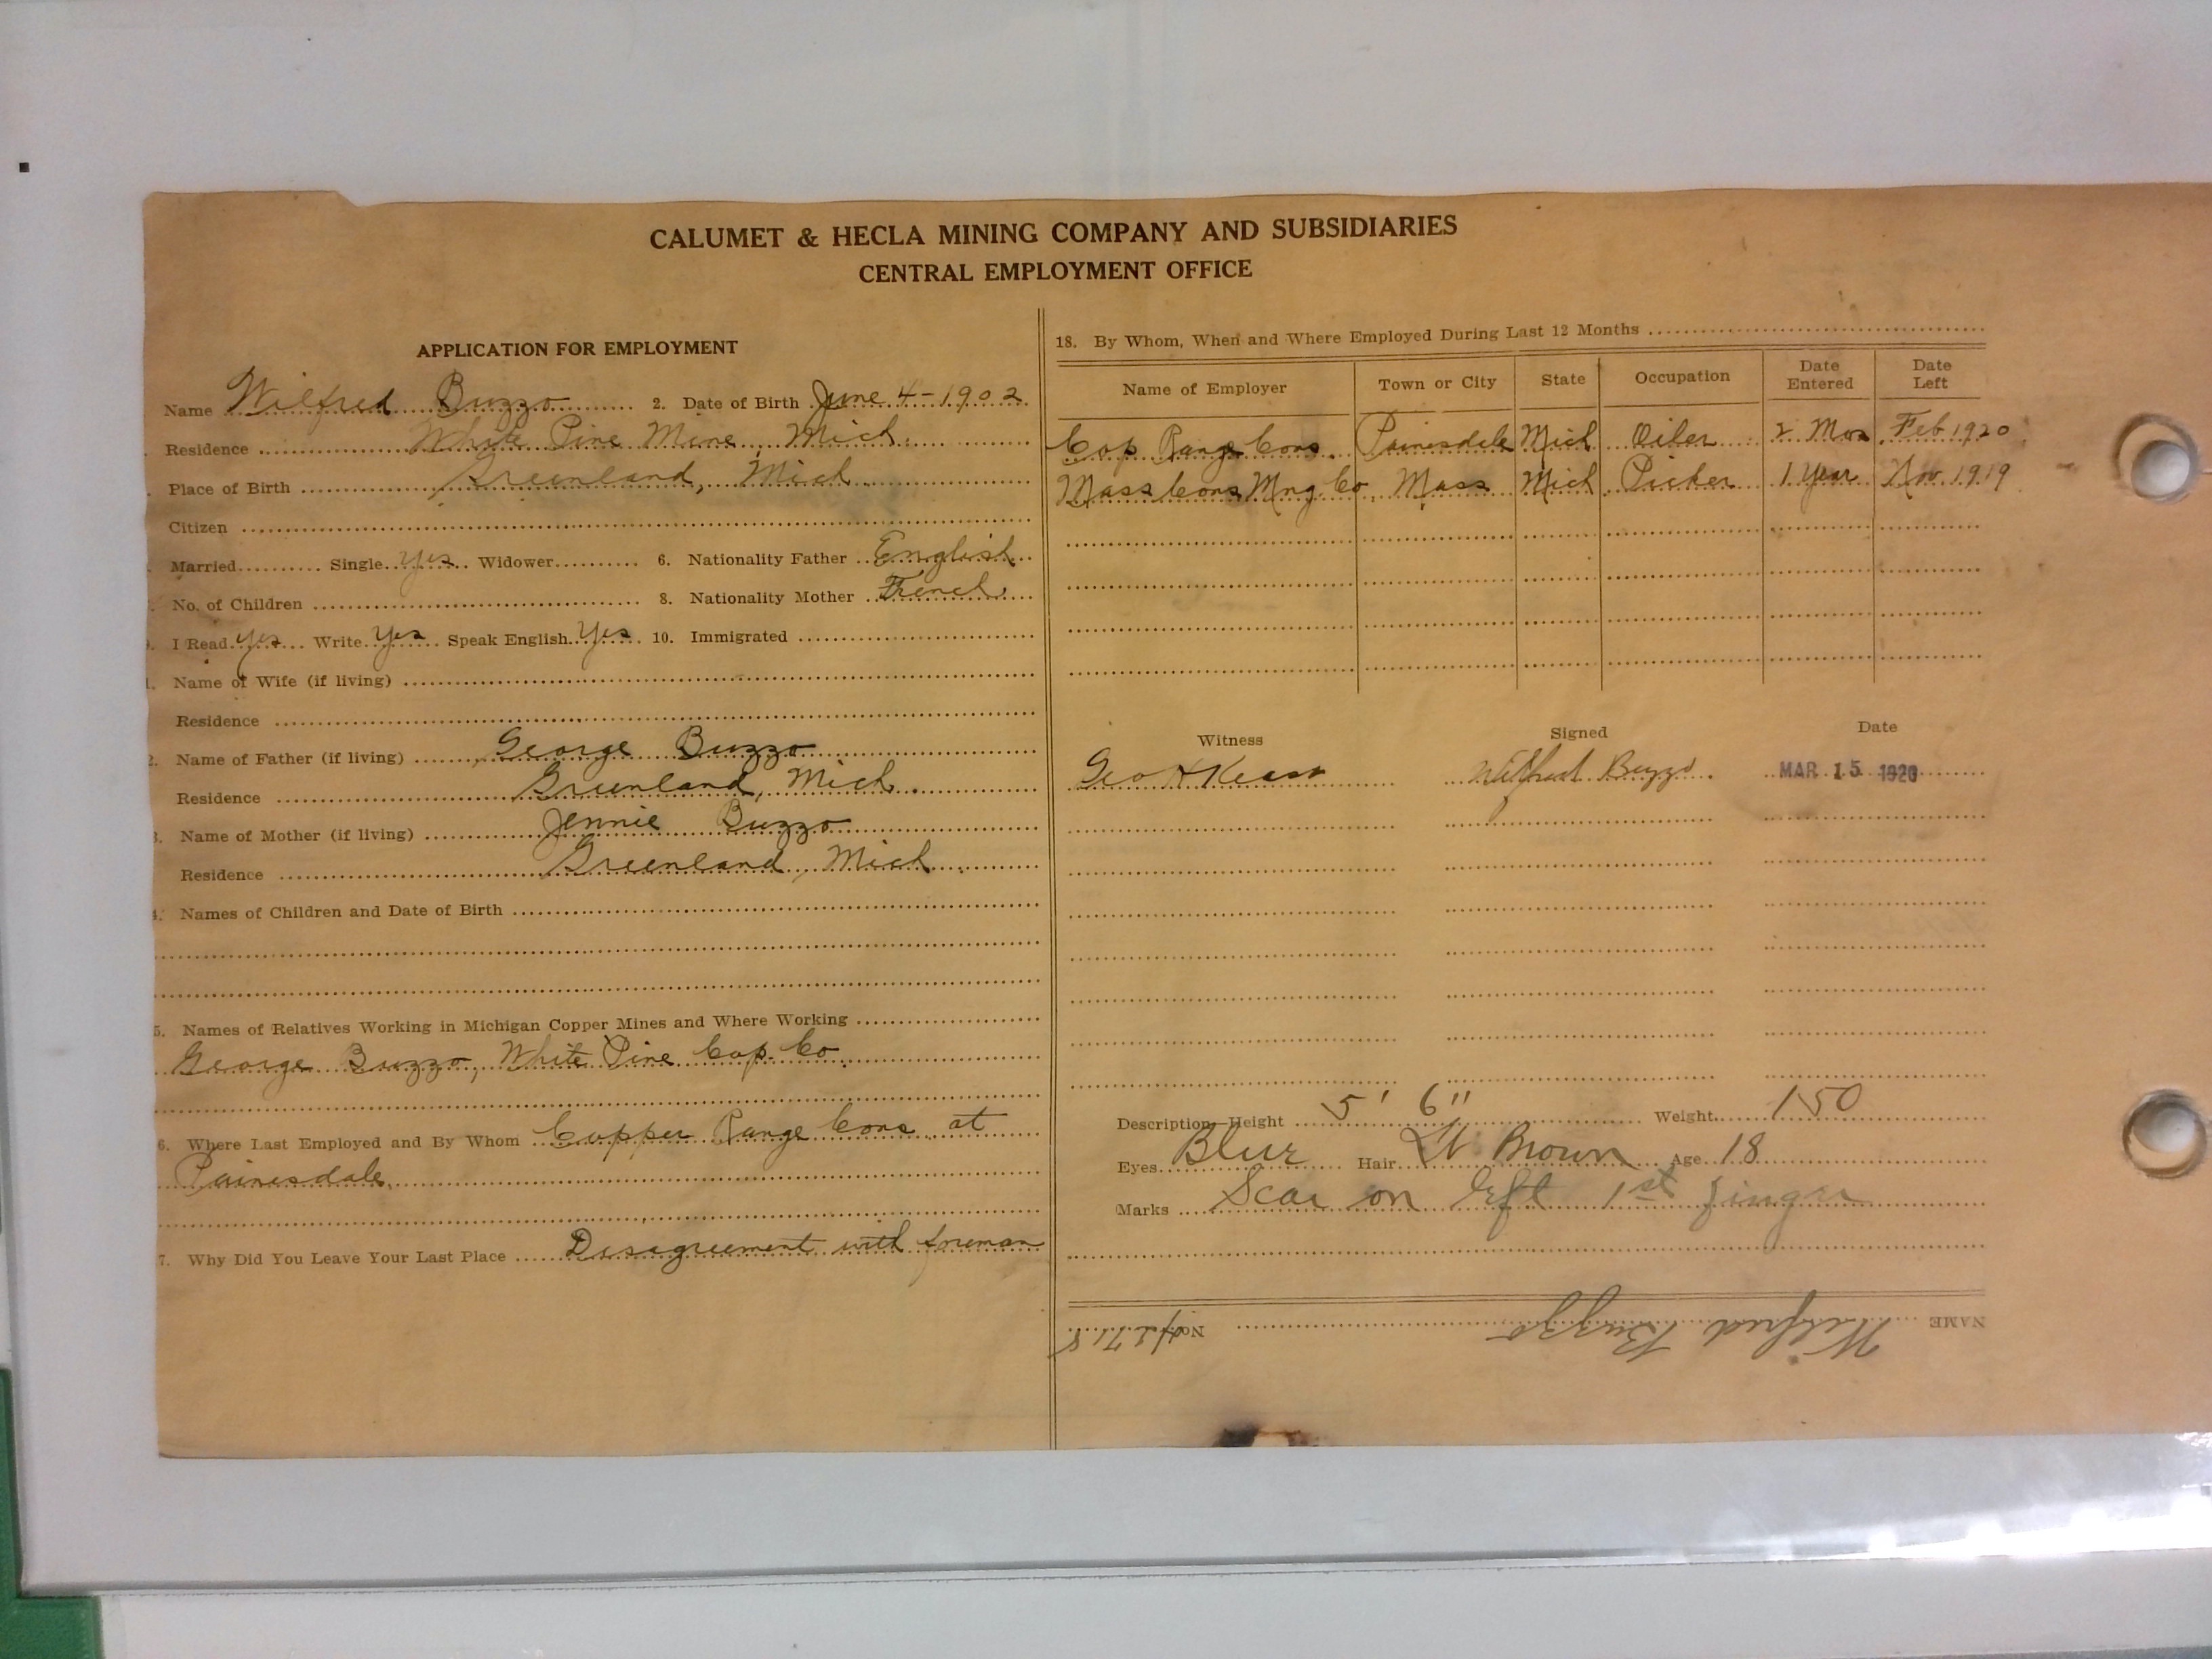 CALUMET & HECLA MINING COMPANY AND SUBSIDIARIES
CENTRAL EMPLOYMENT OFFICE
APPLICATION FOR EMPLOYMENT
Name Wilfred Buzzo 2. Date of Birth June 4-1902
Residence White Pine Mine, Mich.
Place of Birth Greenland, Mich
Citizen
Married Single yes Widower 6. Nationality Father English
No. of Children 8. Nationality Mother French
I Read yes Write yes Speak English yes 10. Immigrated
Name of Wife (if living)
Residence
2. Name of Father (if living) George Buzzo
Residence Greenland, Mich.
3. Name of Mother (if living) Jennie Buzzo
Residence Greenland, Mich
4. Names of Children and Date of Birth
5. Names of Relatives Working in Michigan Copper Mines and Where Working
George Buzzo, White Pine Cop. Co.
6. Where Last Employed and By Whom Copper Range Cons at
Painesdale.
7. Why Did You Leave Your Last Place Disagreement with foreman
18. By Whom, When and Where Employed During Last 12 Months
Name of Employer Town or City State Occupation Date Entered Date Left
Cop Range Cons. Painesdale Mich Oiler 2 Mos Feb 1920
Mass Cons Mng Co Mass Mich Picker 1 Year Nov. 1919
Witness Signed Date
Geo H Keast Wilfred Buzzo. MAR 15 1920
Description—Height 5' 6" Weight 150
Eyes Blue Hair Lt. Brown Age 18
Marks Scar on left 1st finger
NAME Wilfred Buzzo No.